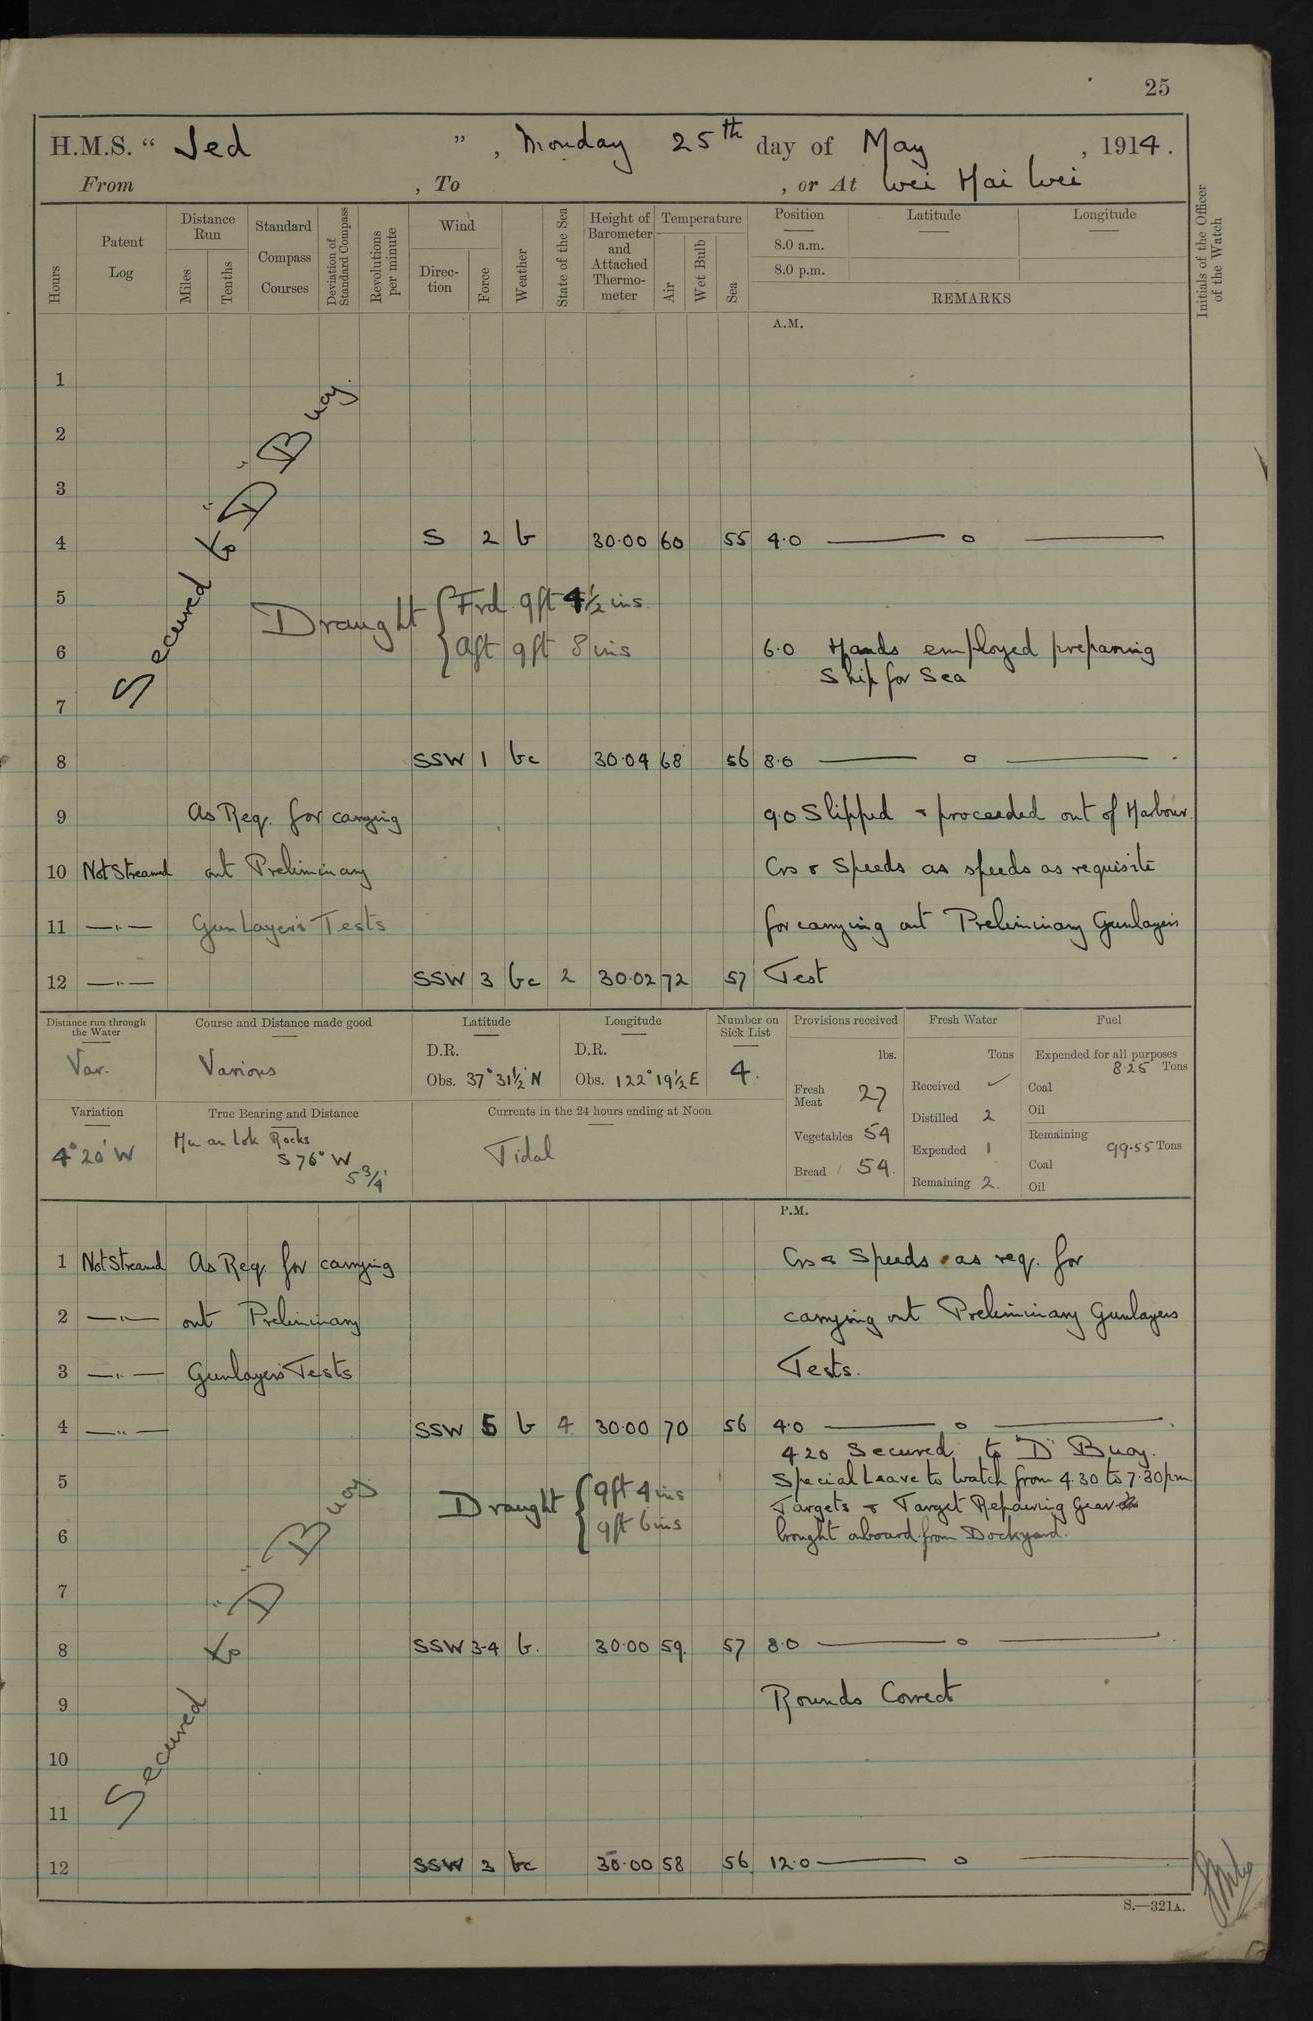 25
H.M.S. " Jed " , Monday 25th day of May , 1914.
From , To , or At Wei Hai Wei
Hours
Patent Log
Distance Run
Miles
Tenths
Standard Compass Courses
Deviation of Standard Compass
Revolutions per minute
Wind
Direction
Force
Weather
State of the Sea
Height of Barometer and Attached Thermometer
Temperature
Air
Wet Bulb
Sea
Position
Latitude
Longitude
8.0 a.m.
8.0 p.m.
REMARKS
Initials of the Officer of the Watch
A.M.
1
2
3
Secured to "D" Buoy.
4 S 2 b 30·00 60 55 4·0 — o —
5 Draught { Frd. 9ft 4½ ins.
6 Aft 9ft 8 ins 6·0 Hands employed preparing
Ship for Sea
7
8 SSW 1 bc 30·04 68 56 8·0 — o — .
9 As Req. for carrying 9·0 Slipped & proceeded out of Harbour.
10 Not Streamed out Preliminary Crs & Speeds as speeds as requisite
11 —"— Gun Layers Tests for carrying out Preliminary Gunlayers
12 —"— SSW 3 bc 2 30·02 72 57 Test
Distance run through the Water
Var.
Course and Distance made good
Various
Latitude
D.R.
Obs. 37° 31½' N
Longitude
D.R.
Obs. 122° 19½ E
Number on Sick List
4.
Provisions received
lbs.
Fresh Meat 27
Vegetables 54
Bread 54.
Fresh Water
Tons
Received ✓
Distilled 2
Expended 1
Remaining 2.
Fuel
Expended for all purposes
8·25 Tons
Coal
Oil
Remaining
99·55 Tons
Coal
Oil
Variation
4° 20' W
True Bearing and Distance
Hu an Lok Rocks
S 76° W
5¾'
Currents in the 24 hours ending at Noon
Tidal
P.M.
1 Not Streamed As Req. for carrying Crs & Speeds as req. for
2 —"— out Preliminary carrying out Preliminary Gunlayers
3 —"— Gunlayers Tests Tests.
4 —"— SSW 5 b 4 30·00 70 56 4·0 — o — .
4·20 Secured to "D" Buoy.
5 Draught { 9ft 4 ins Special Leave to Watch from 4.30 to 7.30pm
9ft 6 ins Targets & Target Repairing Gear
6 brought onboard from Dockyard.
7
Secured to "D" Buoy
8 SSW 3-4 b. 30·00 59. 57 8·0 — o —
9 Rounds Correct
10
11
12 SSW 3 bc 30·00 58 56 12·0 — o —
S.—321A.